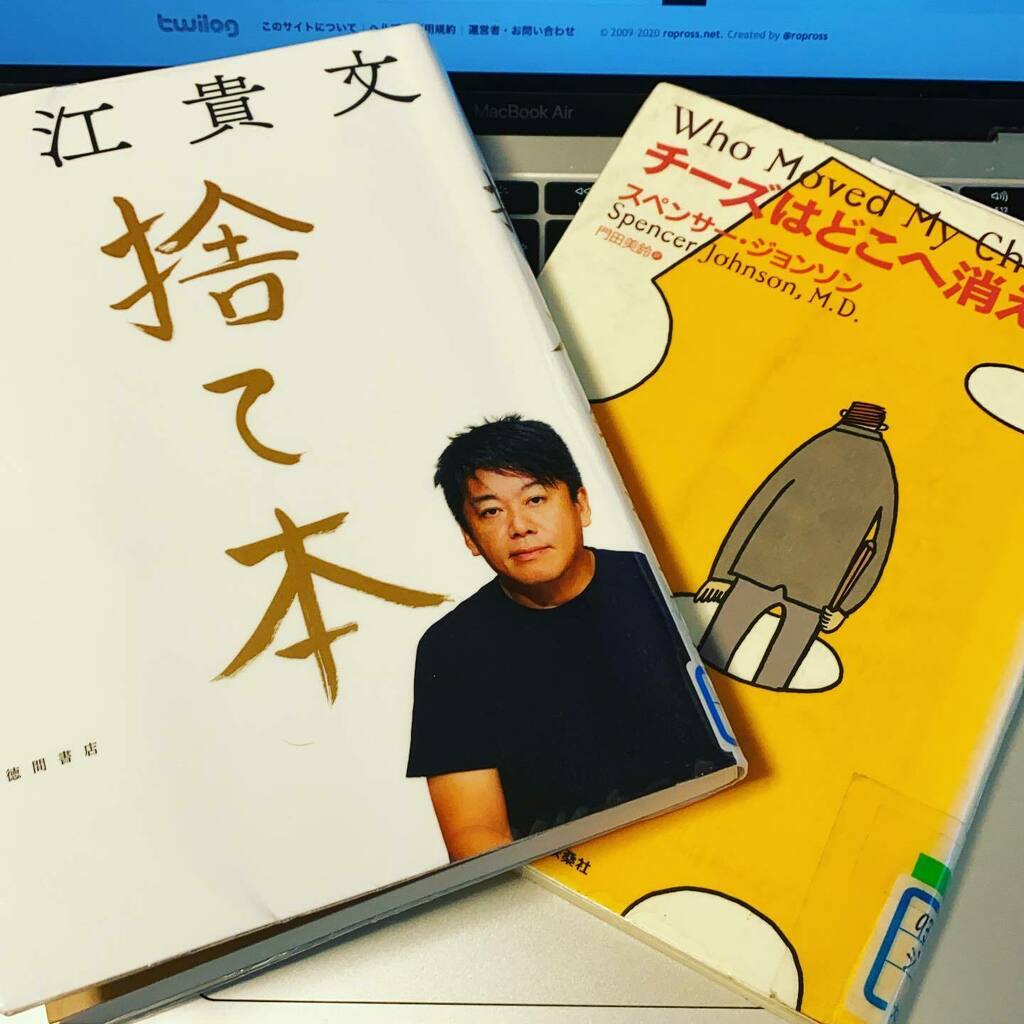 twilog
このサイトについて
用規約 | 運営者・お問い合わせ
© 2009-2020 ropross.net. Created by @ropross
MacBook Air
江貴文
捨て本
徳間書店
Who Moved My Ch
チーズはどこへ消え
スペンサー・ジョンソン
Spencer Johnson, M.D.
門田美鈴 訳
桑社